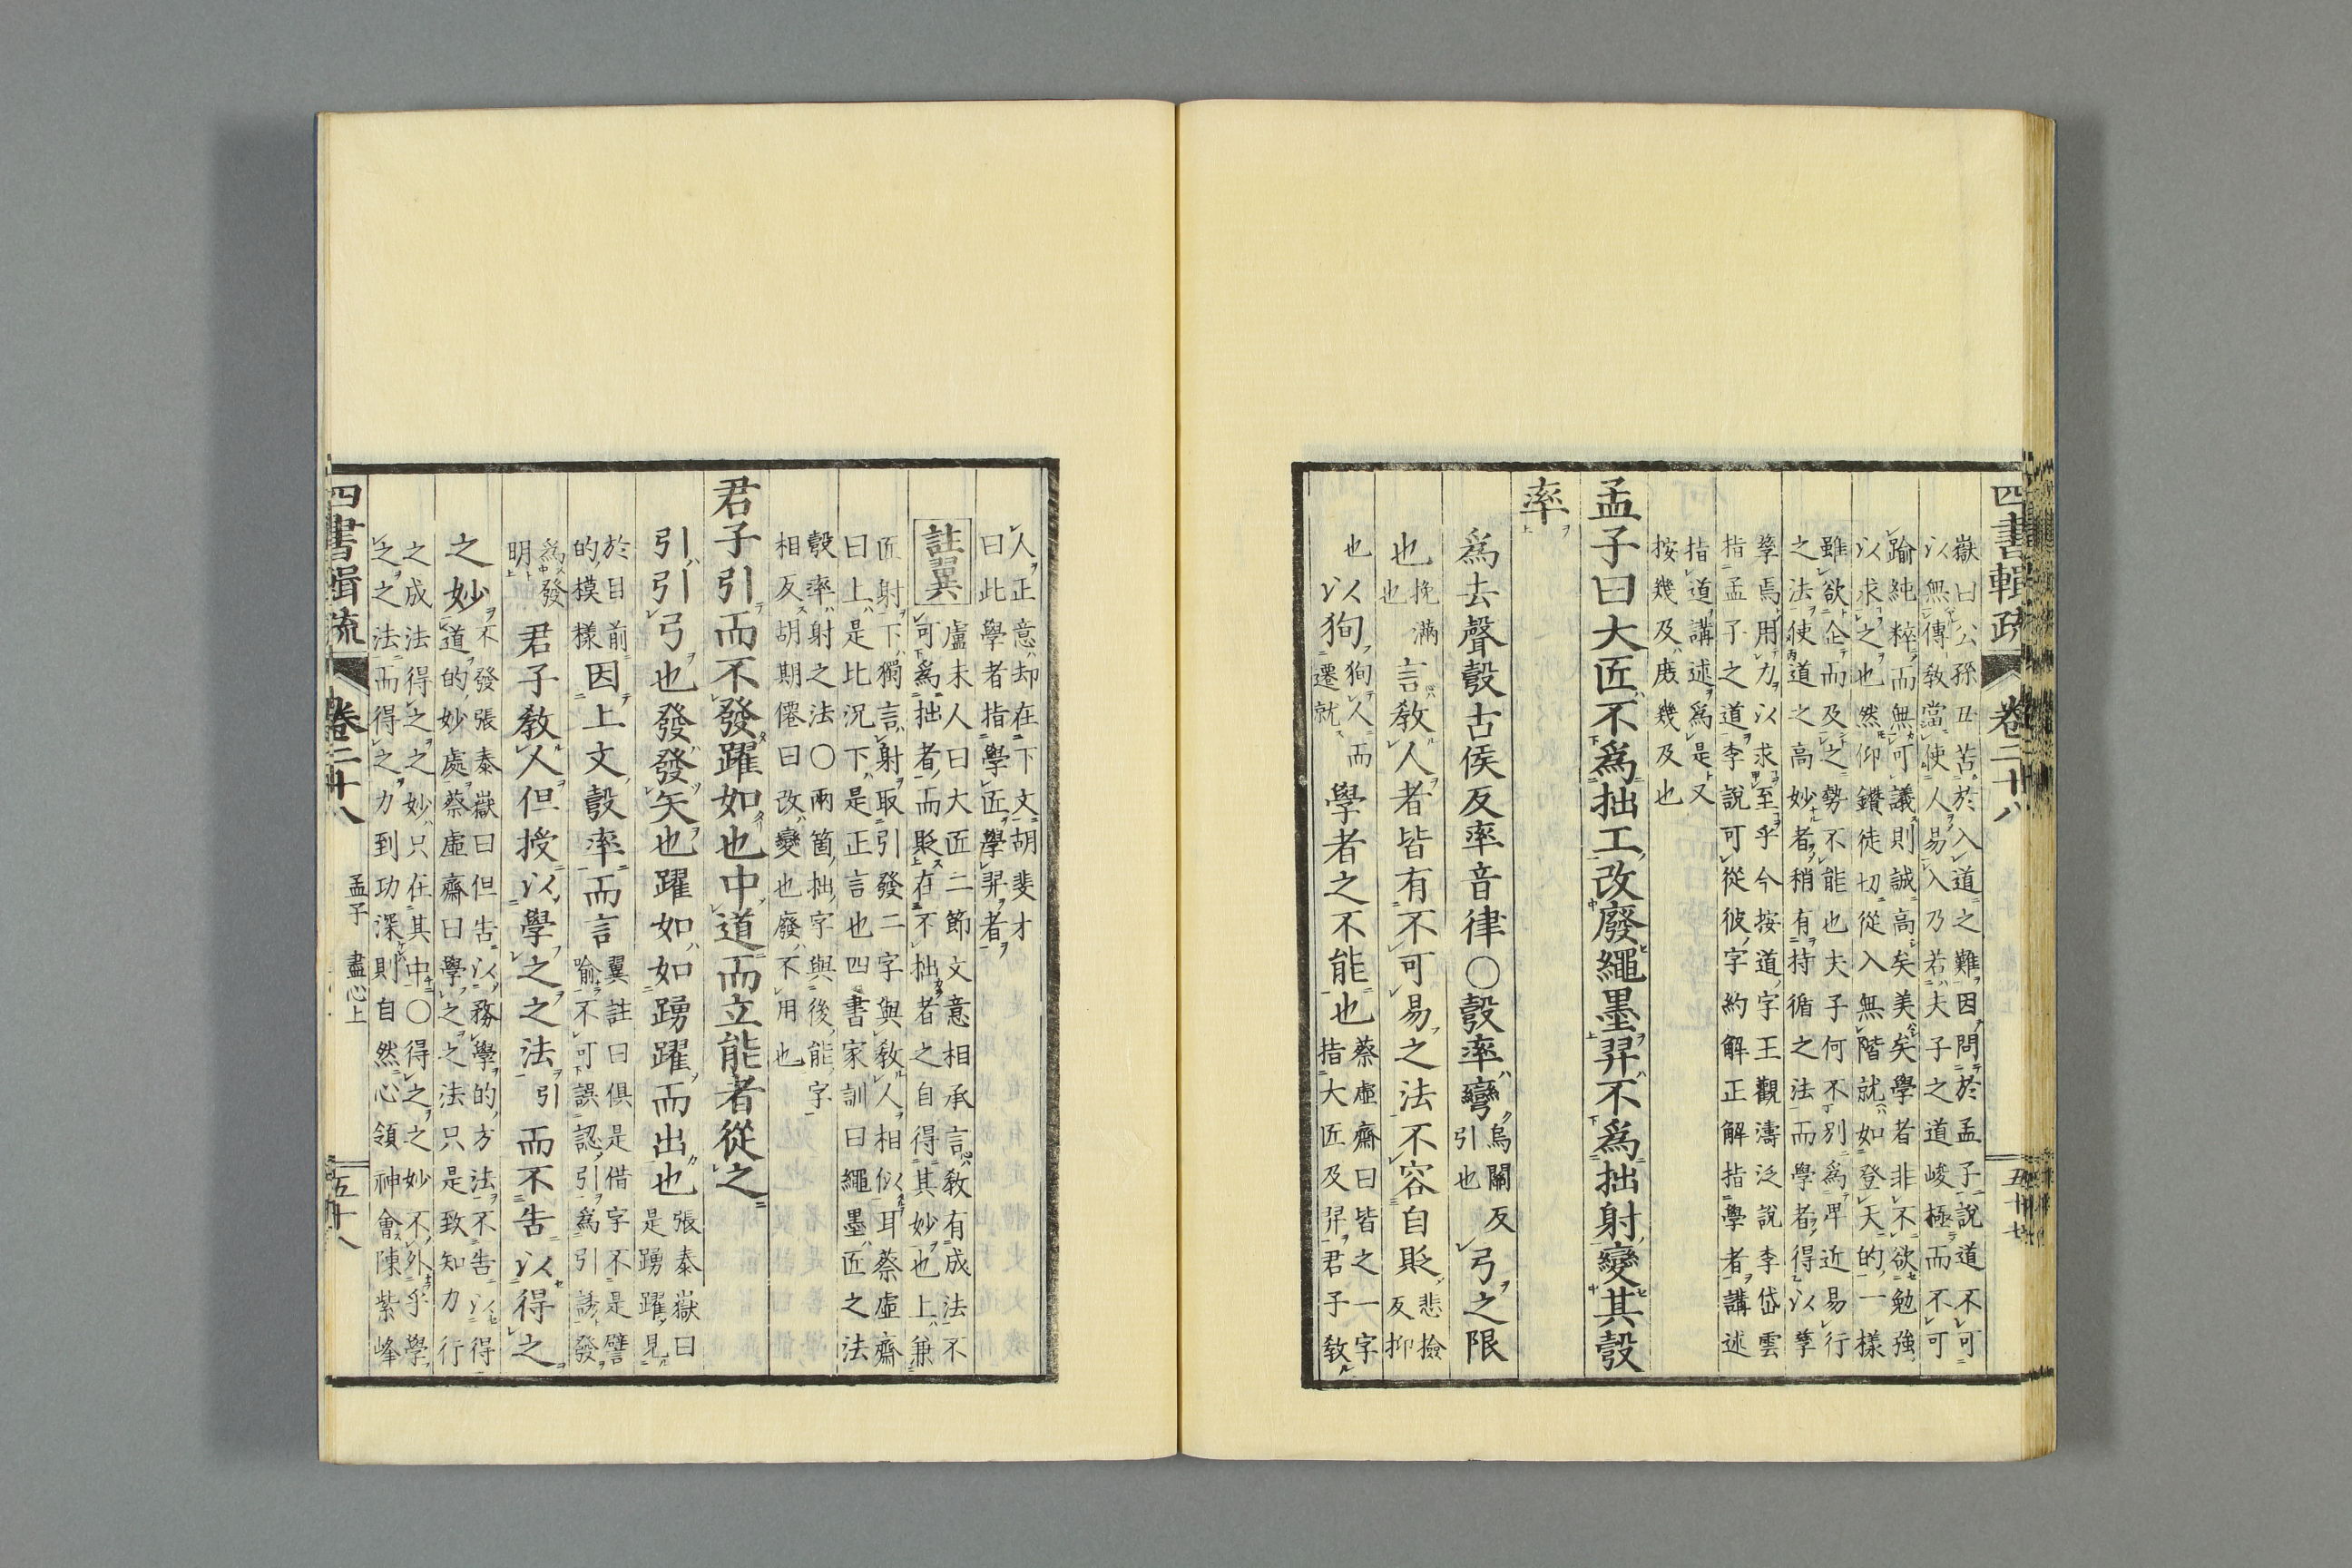 四書輯疏 卷二十八 五十七
嶽曰公孫丑苦於入道之難因問於孟子說道不可
以無傳敎當使人易入乃若夫子之道峻極而不可
踰純粹而無可議則誠高矣美矣學者非不欲勉強
以求之也然仰鑽徒切從入無階就如登天的一樣
雖欲企而及之勢不能也夫子何不別爲卑近易行
之法使道之高妙者稍有持循之法而學者得以孳
孳焉用力以求至乎今按道字王觀濤泛說李岱雲
指孟子之道李說可從彼字約解正解指學者講述
指道講述爲是又
按幾及庶幾及也
孟子曰大匠不爲拙工改廢繩墨羿不爲拙射變其彀
率
爲去聲彀古侯反率音律〇彀率彎烏關反引也弓之限
也挽滿也言敎人者皆有不可易之法不容自貶悲檢反抑
也以狥狥人而遷就學者之不能也蔡虛齋曰皆之一字指大匠及羿君子敎
人正意却在下文胡斐才
曰此學者指學匠學羿者
註翼 盧未人曰大匠二節文意相承言敎有成法不
可爲拙者而貶在不拙者之自得其妙也上兼
匠射下獨言射取引發二字與敎人相似耳蔡虛齋
曰上是比況下是正言也四書家訓曰繩墨匠之法
彀率射之法〇兩箇拙字與後能字
相反胡期僊曰改變也廢不用也
君子引而不發躍如也中道而立能者從之
引引弓也發發矢也躍如如踴躍而出也張泰嶽曰是踴躍見
於目前的模樣因上文彀率而言翼註曰俱是借字不是譬喻不可誤認引爲引誘發
爲發明君子敎人但授以學之之法引而不告以得之
之妙不發張泰嶽曰但告以務學的方法不告以得
道的妙處蔡虛齋曰學之之法只是致知力行
之成法得之之妙只在其中〇得之之妙不外乎學
之之法而得之力到功深則自然心領神會陳紫峰
四書輯疏 卷二十八 孟子 盡心上 五十八